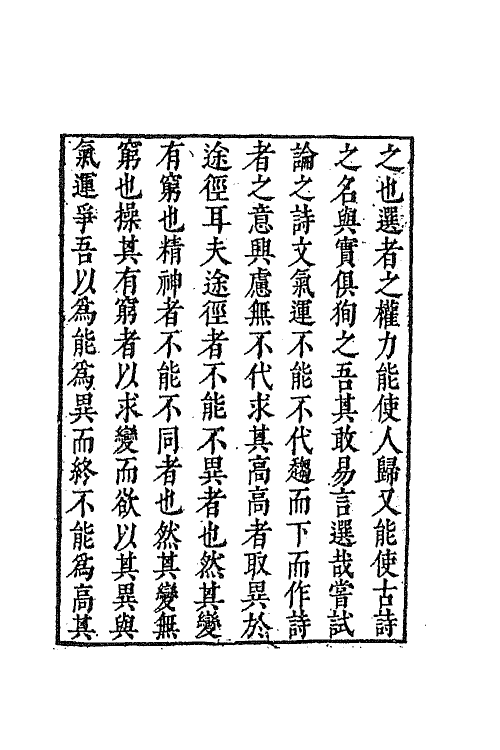 之也選者之權力能使人歸又能使古詩
之名與實俱狥之吾其敢易言選哉嘗試
論之詩文氣運不能不代趨而下而作詩
者之意興慮無不代求其高高者取異於
途徑耳夫途徑者不能不異者也然其變
有窮也精神者不能不同者也然其變無
窮也操其有窮者以求變而欲以其異與
氣運爭吾以為能為異而終不能為高其